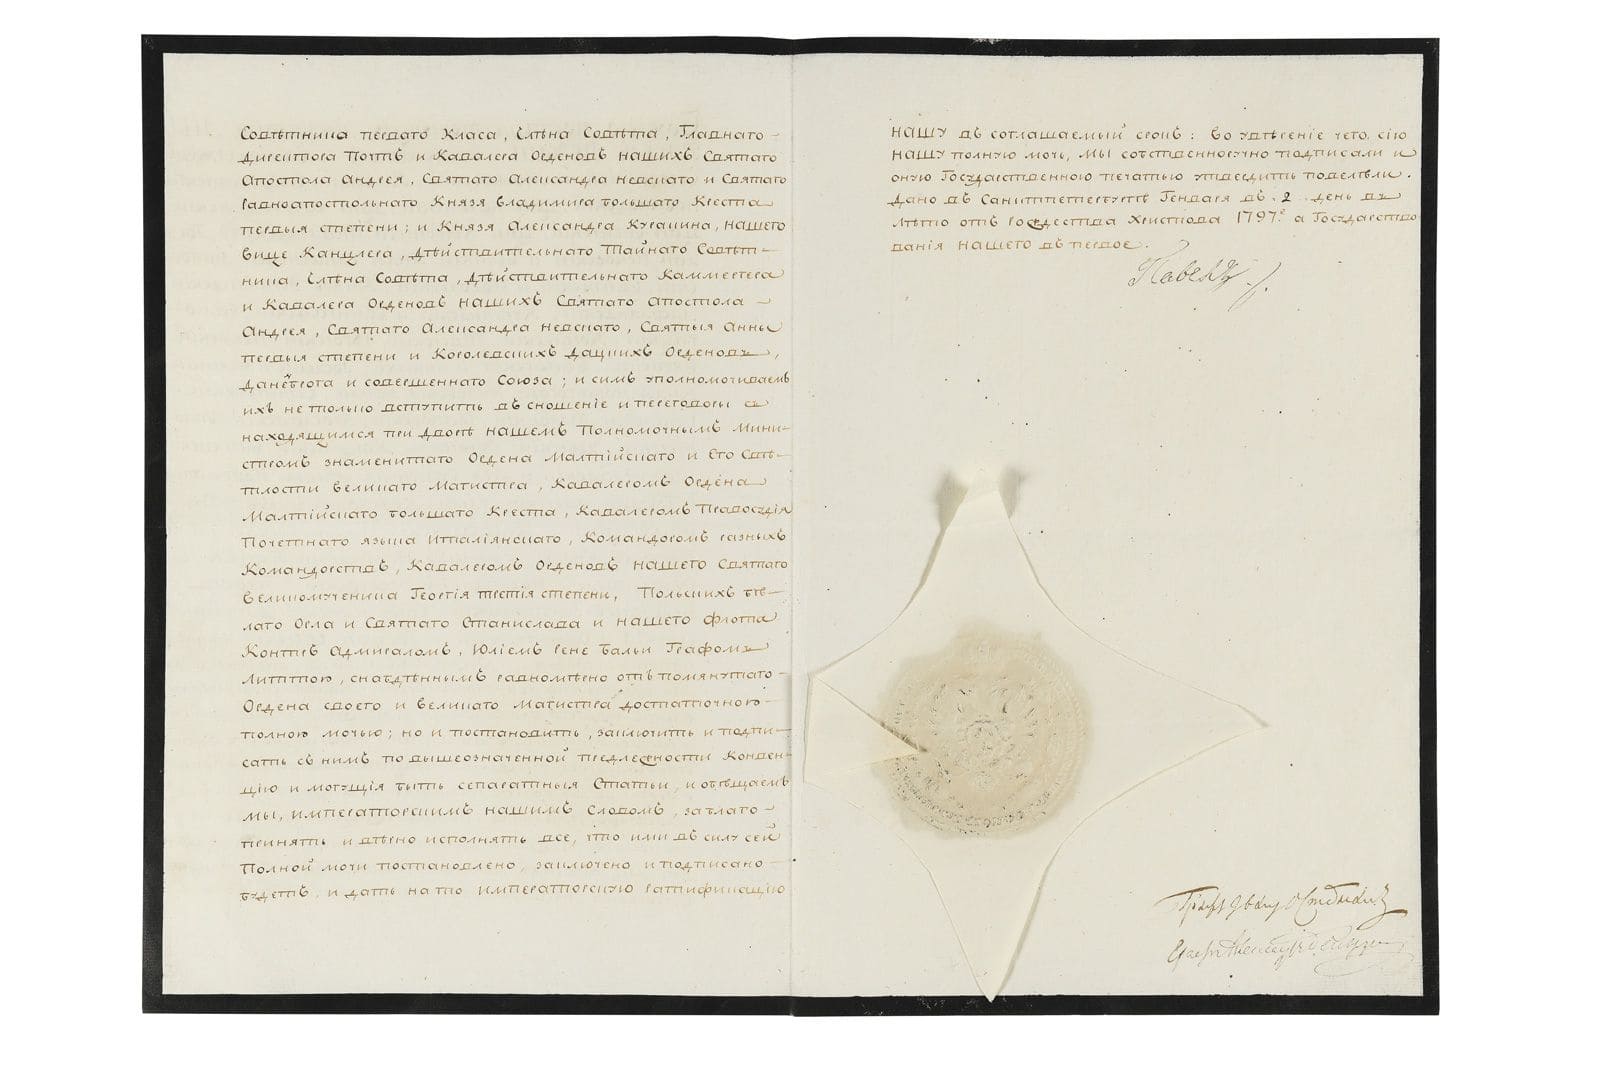 Совѣтника перваго Класа, Члѣна Совѣта, Главнаго
Директора Почтъ и Кавалера Орденовъ нашихъ Святаго
Апостола Андрея, Святаго Александра Невскаго и Святаго
Равноапостольнаго Князя Владимира большаго Креста
первыя степени; и Князя Александра Куракина, нашего
Вице Канцлера, дѣйствительнаго Тайнаго Совѣт-
ника, Члѣна Совѣта, дѣйствительнаго Каммергера
и Кавалера Орденовъ нашихъ Святаго Апостола
Андрея, Святаго Александра Невскаго, Святыя Анны
первыя степени и Королевскихъ Дацкихъ Орденовъ,
Данеброга и совершеннаго Союза; и симъ уполномочиваемъ
ихъ не только вступить въ сношеніе и переговоры съ
находящимся при Дворѣ нашемъ Полномочнымъ Мини-
стромъ знаменитаго Ордена Малтійскаго и Его Свѣ-
тлости великаго Магистра, Кавалеромъ Ордена
Малтійскаго большаго Креста, Кавалеромъ Правосудія
Почетнаго языка Италіянскаго, Командоромъ разныхъ
Командорствъ, Кавалеромъ Орденовъ нашего Святаго
великомученика Георгія третія степени, Польскихъ бѣ-
лаго Орла и Святаго Станислава и нашего флота
Контръ Адмираломъ, Юліемъ Рене Бальи Графомъ
Литтою, снабдѣннымъ равномѣрно отъ помянутаго
Ордена своего и великаго Магистра достаточною
полною мочью; но и постановить, заключить и подпи-
сать съ нимъ по вышеозначенной предлежности Конвен-
цію и могущія быть сепаратныя Статьи, и обѣщаемъ
мы, императорскимъ нашимъ словомъ, за благо
принять и вѣрно исполнять все, что ими въ силу сей
Полной мочи постановлено, заключено и подписано
будетъ, и дать на то императорскую ратификацію
нашу въ соглашаемый срокъ: Во увѣреніе чего, сію
нашу полную мочь, мы собственноручно подписали и
оную Государственною печатью утвердить повелѣли.
Дано въ Санктпетербургѣ Генваря въ 2 день въ
Лѣто отъ рождества Христова 1797е а Государство
ванія нашего въ первое.
Павелъ
Графъ Иванъ Остерманъ